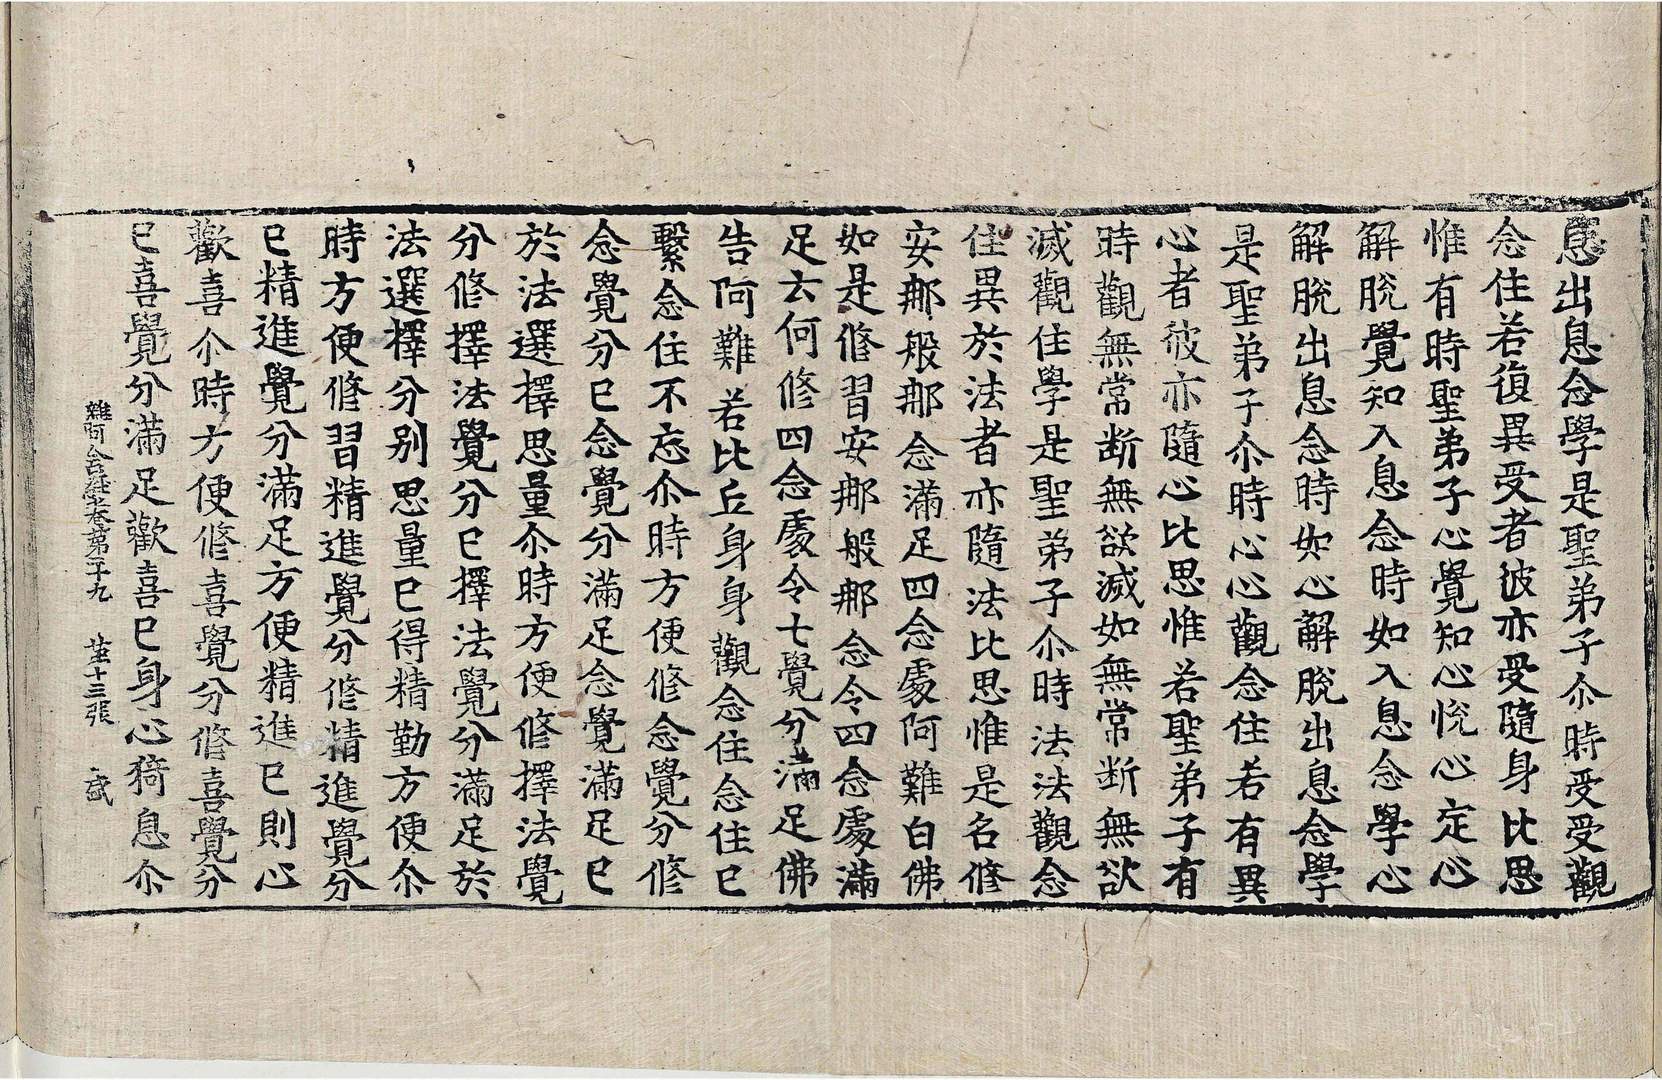 息出息念學是聖弟子尒時受受觀
念住若復異受者彼亦受隨身比思
惟有時聖弟子心覺知心悅心定心
解脫覺知入息念時如入息念學心
解脫出息念時如心解脫出息念學
是聖弟子尒時心心觀念住若有異
心者彼亦隨心比思惟若聖弟子有
時觀無常断無欲滅如無常断無欲
滅觀住學是聖弟子尒時法法觀念
住異於法者亦隨法比思惟是名修
安那般那念滿足四念處阿難白佛
如是修習安那般那念令四念處滿
足云何修四念處令七覺分滿足佛
告阿難若比丘身身觀念住念住已
繫念住不忘尒時方便修念覺分修
念覺分已念覺分滿足念覺滿足已
於法選擇思量尒時方便修擇法覺
分修擇法覺分已擇法覺分滿足於
法選擇分别思量已得精勤方便尒
時方便修習精進覺分修精進覺分
已精進覺分滿足方便精進已則心
歡喜尒時方便修喜覺分修喜覺分
已喜覺分滿足歡喜已身心猗息尒
雜阿含経卷第廾九 十三張